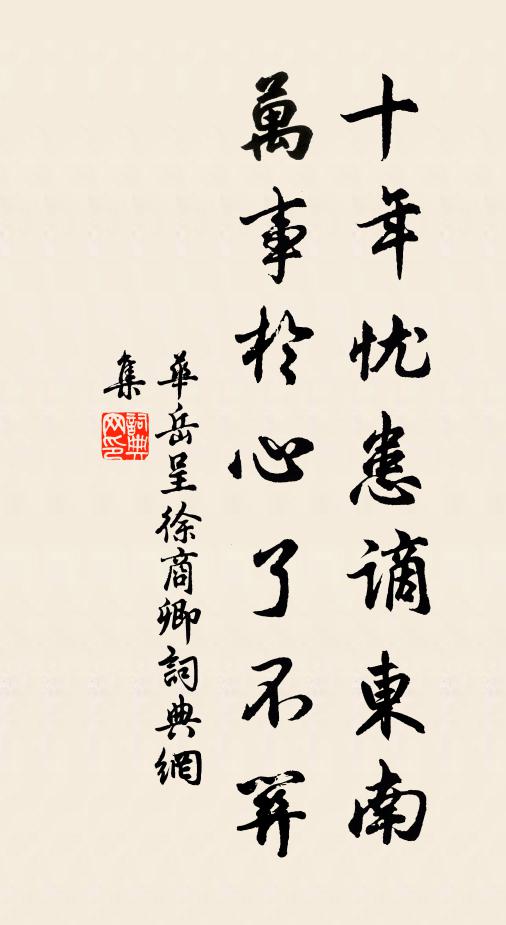 十年忧患謫東南
萬事於心了不關
華岳呈徐商卿詞典網
集
詞典网印